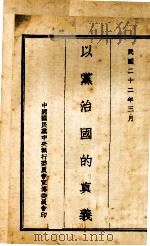 民國二十二年三月
以黨治國的真義
中國國民黨中央執行委員會宣傳委員會印